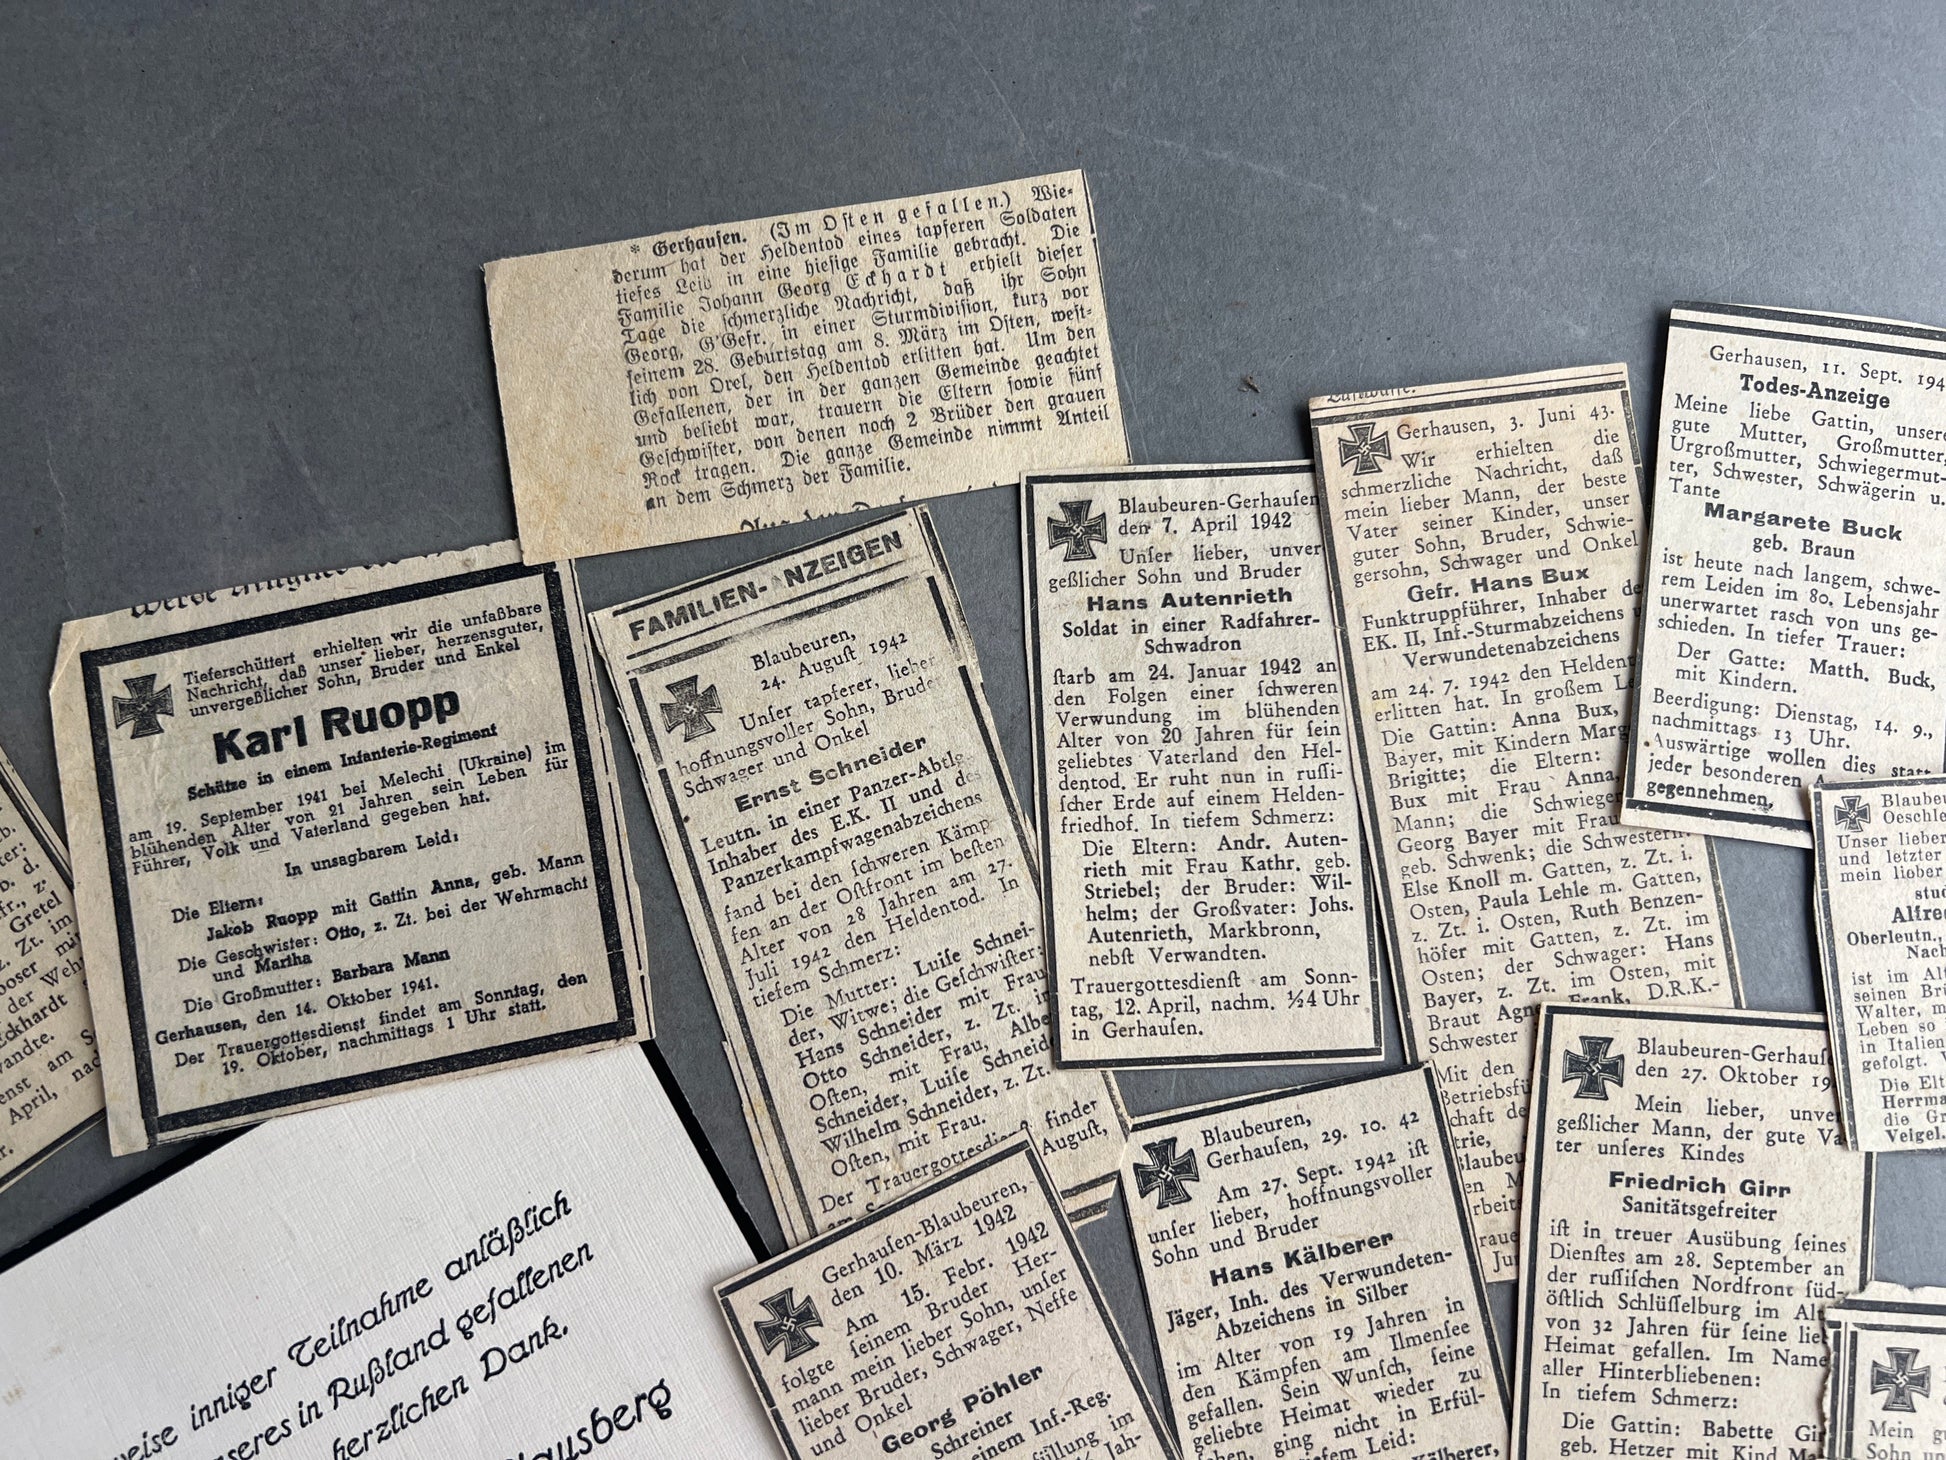 * Gerhausen. (Im Osten gefallen.) Wie-
derum hat der Heldentod eines tapferen Soldaten
tiefes Leid in eine hiesige Familie gebracht. Die
Familie Johann Georg Eckhardt erhielt dieser
Tage die schmerzliche Nachricht, daß ihr Sohn
Georg, G'Gefr. in einer Sturmdivision, kurz vor
seinem 28. Geburtstag am 8. März im Osten, west-
lich von Orel, den Heldentod erlitten hat. Um den
Gefallenen, der in der ganzen Gemeinde geachtet
und beliebt war, trauern die Eltern sowie fünf
Geschwister, von denen noch 2 Brüder den grauen
Rock tragen. Die ganze Gemeinde nimmt Anteil
an dem Schmerz der Familie.
Tieferschüttert erhielten wir die unfaßbare
Nachricht, daß unser lieber, herzensguter,
unvergeßlicher Sohn, Bruder und Enkel
Karl Ruopp
Schütze in einem Infanterie-Regiment
am 19. September 1941 bei Melechi (Ukraine) im
blühenden Alter von 21 Jahren sein Leben für
Führer, Volk und Vaterland gegeben hat.
In unsagbarem Leid:
Die Eltern:
Jakob Ruopp mit Gattin Anna, geb. Mann
Die Geschwister: Otto, z. Zt. bei der Wehrmacht
und Martha
Die Großmutter: Barbara Mann
Gerhausen, den 14. Oktober 1941.
Der Trauergottesdienst findet am Sonntag, den
19. Oktober, nachmittags 1 Uhr statt.
FAMILIEN-ANZEIGEN
Blaubeuren,
24. August 1942
Unser tapferer, lieber
hoffnungsvoller Sohn, Bruder
Schwager und Onkel
Ernst Schneider
Leutn. in einer Panzer-Abtlg.
Inhaber des E.K. II und des
Panzerkampfwagenabzeichens
fand bei den schweren Kämp-
fen an der Ostfront im besten
Alter von 28 Jahren am 27.
Juli 1942 den Heldentod. In
tiefem Schmerz:
Die Mutter: Luise Schnei-
der, Witwe; die Geschwister:
Hans Schneider mit Frau
Otto Schneider, z. Zt. im
Osten, mit Frau, Albe
Schneider, Luise Schneid
Wilhelm Schneider, z. Zt.
Osten, mit Frau.
Der Trauergottesdienst findet
August,
Blaubeuren-Gerhausen
den 7. April 1942
Unser lieber, unver
geßlicher Sohn und Bruder
Hans Autenrieth
Soldat in einer Radfahrer-
Schwadron
starb am 24. Januar 1942 an
den Folgen einer schweren
Verwundung im blühenden
Alter von 20 Jahren für sein
geliebtes Vaterland den Hel-
dentod. Er ruht nun in russi-
scher Erde auf einem Helden-
friedhof. In tiefem Schmerz:
Die Eltern: Andr. Auten-
rieth mit Frau Kathr. geb.
Striebel; der Bruder: Wil-
helm; der Großvater: Johs.
Autenrieth, Markbronn,
nebst Verwandten.
Trauergottesdienst am Sonn-
tag, 12. April, nachm. ½4 Uhr
in Gerhausen.
Gerhausen, 3. Juni 43.
Wir erhielten die
schmerzliche Nachricht, daß
mein lieber Mann, der beste
Vater seiner Kinder, unser
guter Sohn, Bruder, Schwie-
gersohn, Schwager und Onkel
Gefr. Hans Bux
Funktruppführer, Inhaber de
EK. II, Inf.-Sturmabzeichens
Verwundetenabzeichens
am 24. 7. 1942 den Heldent
erlitten hat. In großem Le
Die Gattin: Anna Bux,
Bayer, mit Kindern Marg
Brigitte; die Eltern:
Bux mit Frau Anna,
Mann; die Schwieger
Georg Bayer mit Frau
geb. Schwenk; die Schwestern:
Else Knoll m. Gatten, z. Zt. i.
Osten, Paula Lehle m. Gatten,
z. Zt. i. Osten, Ruth Benzen-
höfer mit Gatten, z. Zt. im
Osten; der Schwager: Hans
Bayer, z. Zt. im Osten, mit
Braut Agnes Frank, D.R.K.-
Schwester
Mit den
Betriebsfü
chaft de
trie,
Blaubeu
Gerhausen, 11. Sept. 194
Todes-Anzeige
Meine liebe Gattin, unsere
gute Mutter, Großmutter,
Urgroßmutter, Schwiegermut-
ter, Schwester, Schwägerin u.
Tante
Margarete Buck
geb. Braun
ist heute nach langem, schwe-
rem Leiden im 80. Lebensjahr
unerwartet rasch von uns ge-
schieden. In tiefer Trauer:
Der Gatte: Matth. Buck,
mit Kindern.
Beerdigung: Dienstag, 14. 9.,
nachmittags 13 Uhr.
Auswärtige wollen dies statt
jeder besonderen
gegennehmen.
Blaubeu
Oeschle
Unser lieber
und letzter
mein lieber
stud
Alfre
Oberleutn.,
Nach
ist im Alt
seinen Brü
Walter, m
Leben so
in Italien
gefolgt.
Die Elt
Herrma
die Gr
Veigel.
Gerhausen-Blaubeuren,
den 10. März 1942
Am 15. Febr. 1942
folgte seinem Bruder Her-
mann mein lieber Sohn, unser
lieber Bruder, Schwager, Neffe
und Onkel
Georg Pöhler
Schreiner
einem Inf.-Reg.
füllung im
Jah-
Blaubeuren,
Gerhausen, 29. 10. 42
Am 27. Sept. 1942 ist
unser lieber, hoffnungsvoller
Sohn und Bruder
Hans Kälberer
Jäger, Inh. des Verwundeten-
Abzeichens in Silber
im Alter von 19 Jahren in
den Kämpfen am Ilmensee
gefallen. Sein Wunsch, seine
geliebte Heimat wieder zu
sehen, ging nicht in Erfül-
tiefem Leid:
Kälberer,
Blaubeuren-Gerhause
den 27. Oktober 19
Mein lieber, unve
geßlicher Mann, der gute Va
ter unseres Kindes
Friedrich Girr
Sanitätsgefreiter
ist in treuer Ausübung seines
Dienstes am 28. September an
der russischen Nordfront süd-
östlich Schlüsselburg im Alt
von 32 Jahren für seine lie
Heimat gefallen. Im Name
aller Hinterbliebenen:
In tiefem Schmerz:
Die Gattin: Babette Gir
geb. Hetzer mit Kind Ma
Mein g
Sohn un
weise inniger Teilnahme anläßlich
unseres in Rußland gefallenen
herzlichen Dank.
lausberg
ter:
b. d.
fr., z.
Gretel
Zt. im
oser mit
der Weh
Eckhardt
wandte.
enst am S
April, nac